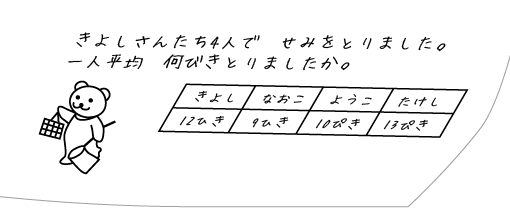 きよしさんたち4人で せみをとりました。
一人平均 何びきとりましたか。
きよし なおこ ようこ たけし
12ひき 9ひき 10ぴき 13びき